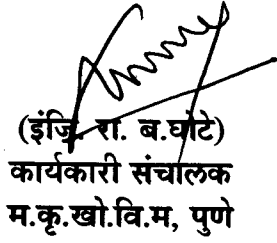 (इंजि. रा. ब.घोटे)
कार्यकारी संचालक
म.कृ.खो.वि.म, पुणे